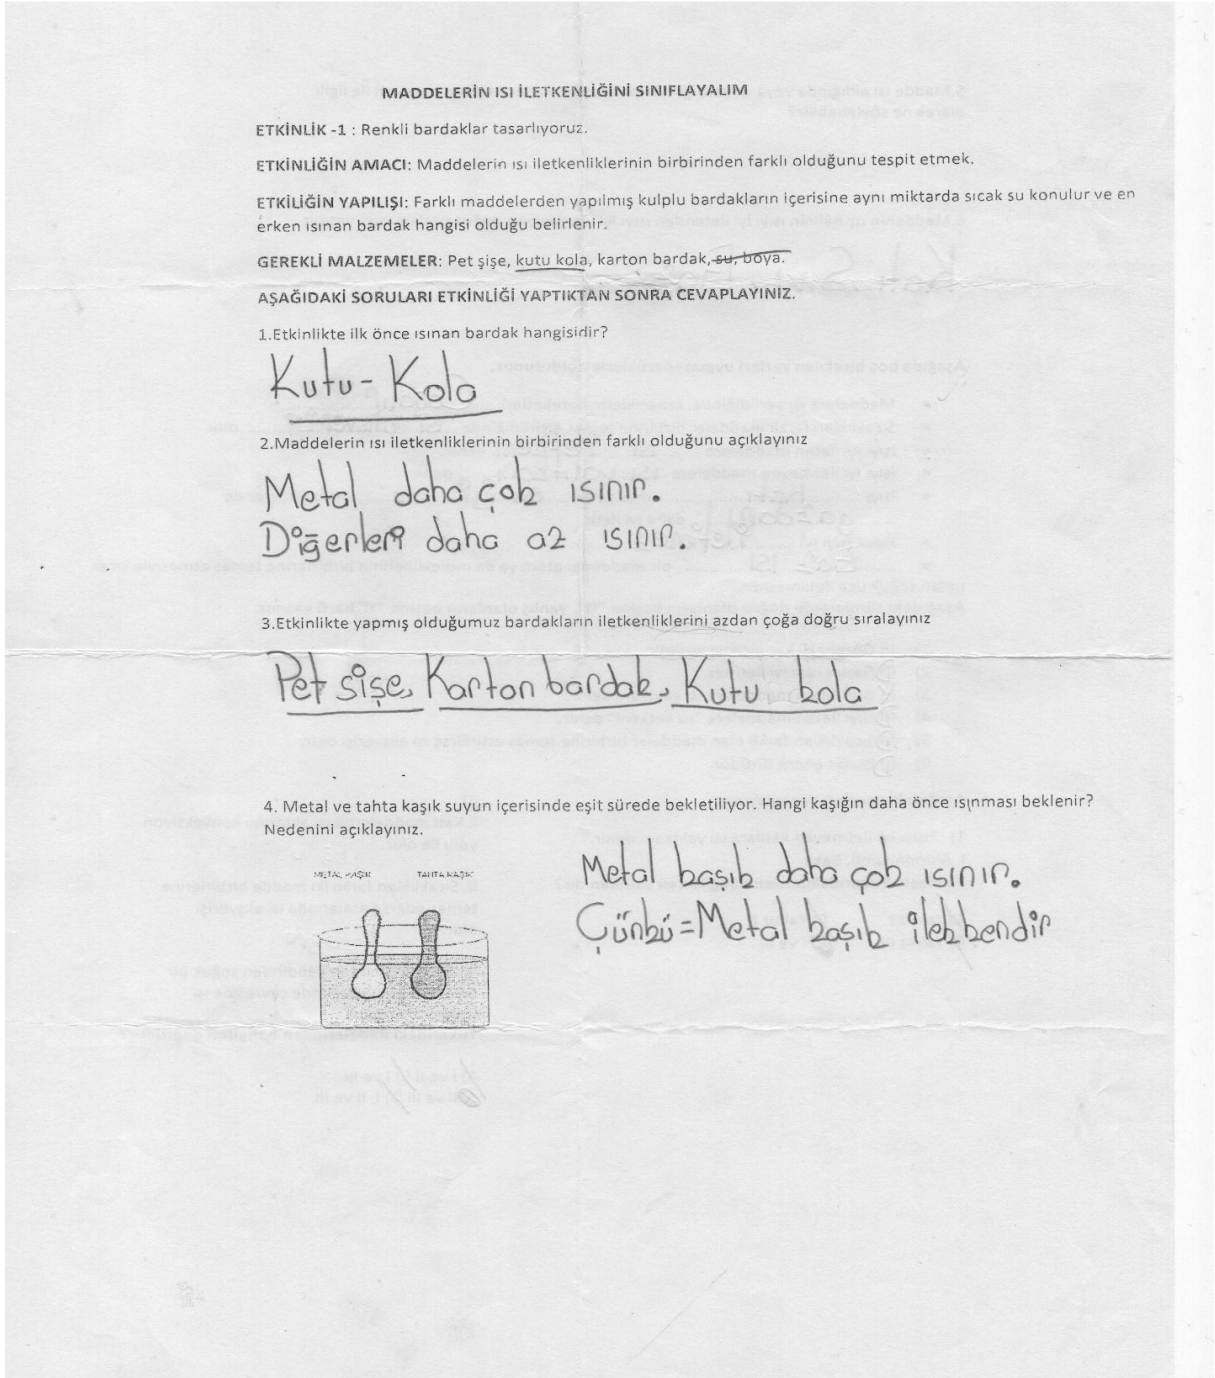 MADDELERİN ISI İLETKENLİĞİNİ SINIFLAYALIM
ETKİNLİK -1 : Renkli bardaklar tasarlıyoruz.
ETKİNLİĞİN AMACI: Maddelerin ısı iletkenliklerinin birbirinden farklı olduğunu tespit etmek.
ETKİLİĞİN YAPILIŞI: Farklı maddelerden yapılmış kulplu bardakların içerisine aynı miktarda sıcak su konulur ve en
erken ısınan bardak hangisi olduğu belirlenir.
GEREKLİ MALZEMELER: Pet şişe, kutu kola, karton bardak, su, boya.
AŞAĞIDAKİ SORULARI ETKİNLİĞİ YAPTIKTAN SONRA CEVAPLAYINIZ.
1.Etkinlikte ilk önce ısınan bardak hangisidir?
Kutu - Kola
2.Maddelerin ısı iletkenliklerinin birbirinden farklı olduğunu açıklayınız
Metal daha çok ısınır.
Diğerleri daha az ısınır.
3.Etkinlikte yapmış olduğumuz bardakların iletkenliklerini azdan çoğa doğru sıralayınız
Pet şişe, Karton bardak, Kutu kola
4. Metal ve tahta kaşık suyun içerisinde eşit sürede bekletiliyor. Hangi kaşığın daha önce ısınması beklenir?
Nedenini açıklayınız.
METAL KAŞIK TAHTA KAŞIK
Metal kaşık daha çok ısınır.
Çünkü=Metal kaşık ilekkendir